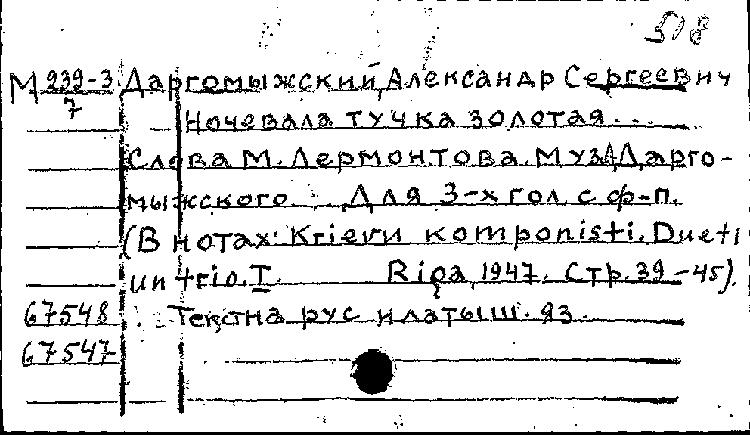 518
М 939-3/7 Даргомыжский, Александр Сергеевич
Ночевала тучка золотая...
Слова М. Лермонтова. Муз. А. Дарго-
мыжского. Для 3-х гол. с ф-п.
(В нотах: Krievu komponisti. Dueti
un trio. I. Riga, 1947. Стр. 39-45).
67548 Текст на рус и латыш. яз.
67547